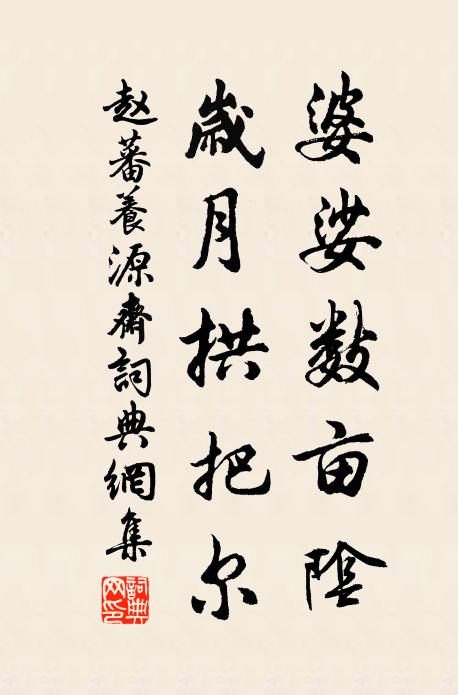 婆娑数亩陰
歲月拱把尔
赵蕃養源齋詞典網集
詞典網印